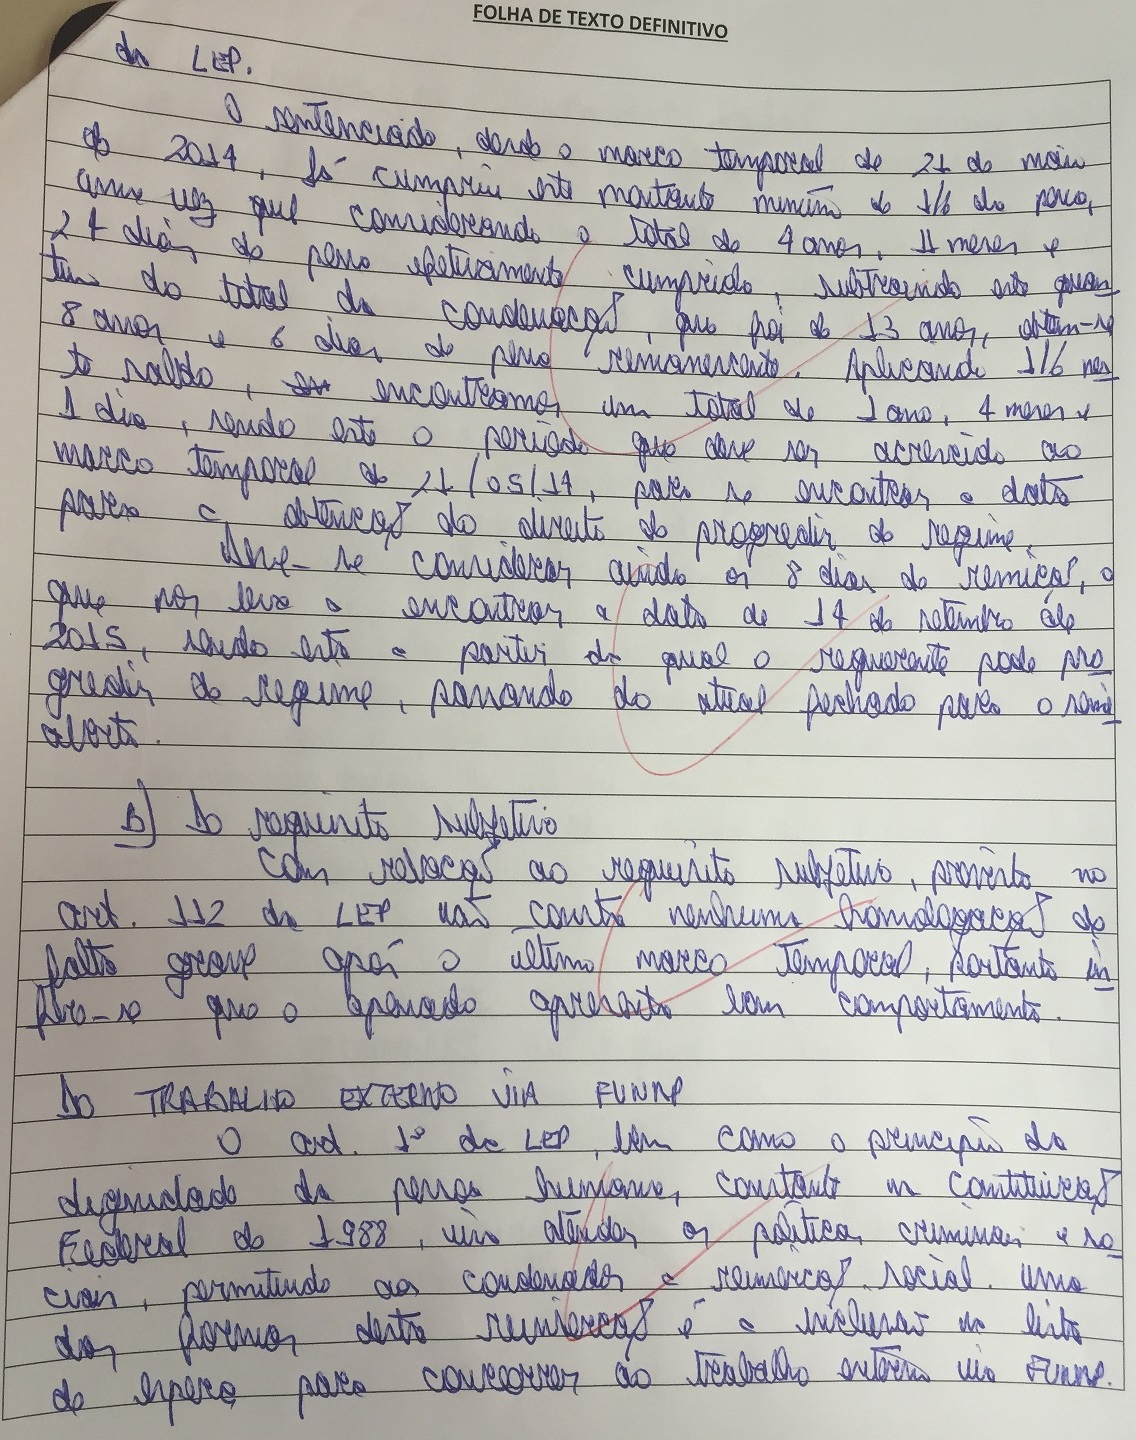 FOLHA DE TEXTO DEFINITIVO
da LEP.
O sentenciado, desde o marco temporal de 21 de maio
de 2014, já cumpriu este montante mínimo de 1/6 da pena,
uma vez que considerando o total de 4 anos, 11 meses e
24 dias de pena efetivamente cumprida, subtraindo este quan
tum do total da condenação, que foi de 13 anos, obtem-se
8 anos e 6 dias de pena remanescente. Aplicando 1/6 nes
te saldo, encontramos um total de 1 ano, 4 meses e
1 dia, sendo este o período que deve ser acrescido ao
marco temporal de 21/05/14, para se encontrar a data
para a obtenção do direito de progredir de regime.
Deve-se considerar ainda os 8 dias de remição, o
que nos leva a encontrar a data de 14 de setembro de
2015, sendo esta a partir da qual o requerente pode pro
gredir de regime, passando do atual fechado para o semi
aberto.
B) Do requisito subjetivo
Com relação ao requisito subjetivo, previsto no
art. 112 da LEP não consta nenhuma homologação de
falta grave após o ultimo marco temporal, portanto in
fere-se que o apenado apresenta bom comportamento.
Do TRABALHO EXTERNO VIA FUNAP
O art. 1º da LEP, bem como o princípio da
dignidade da pessoa humana, constante na Constituição
Federal de 1988, vis atender as políticas criminais e so
ciais, permitindo aos condenados a reinserção social. Uma
das formas desta reinserção é a inclusão na lista
de espera para concorrer ao trabalho externo via FUNAP.